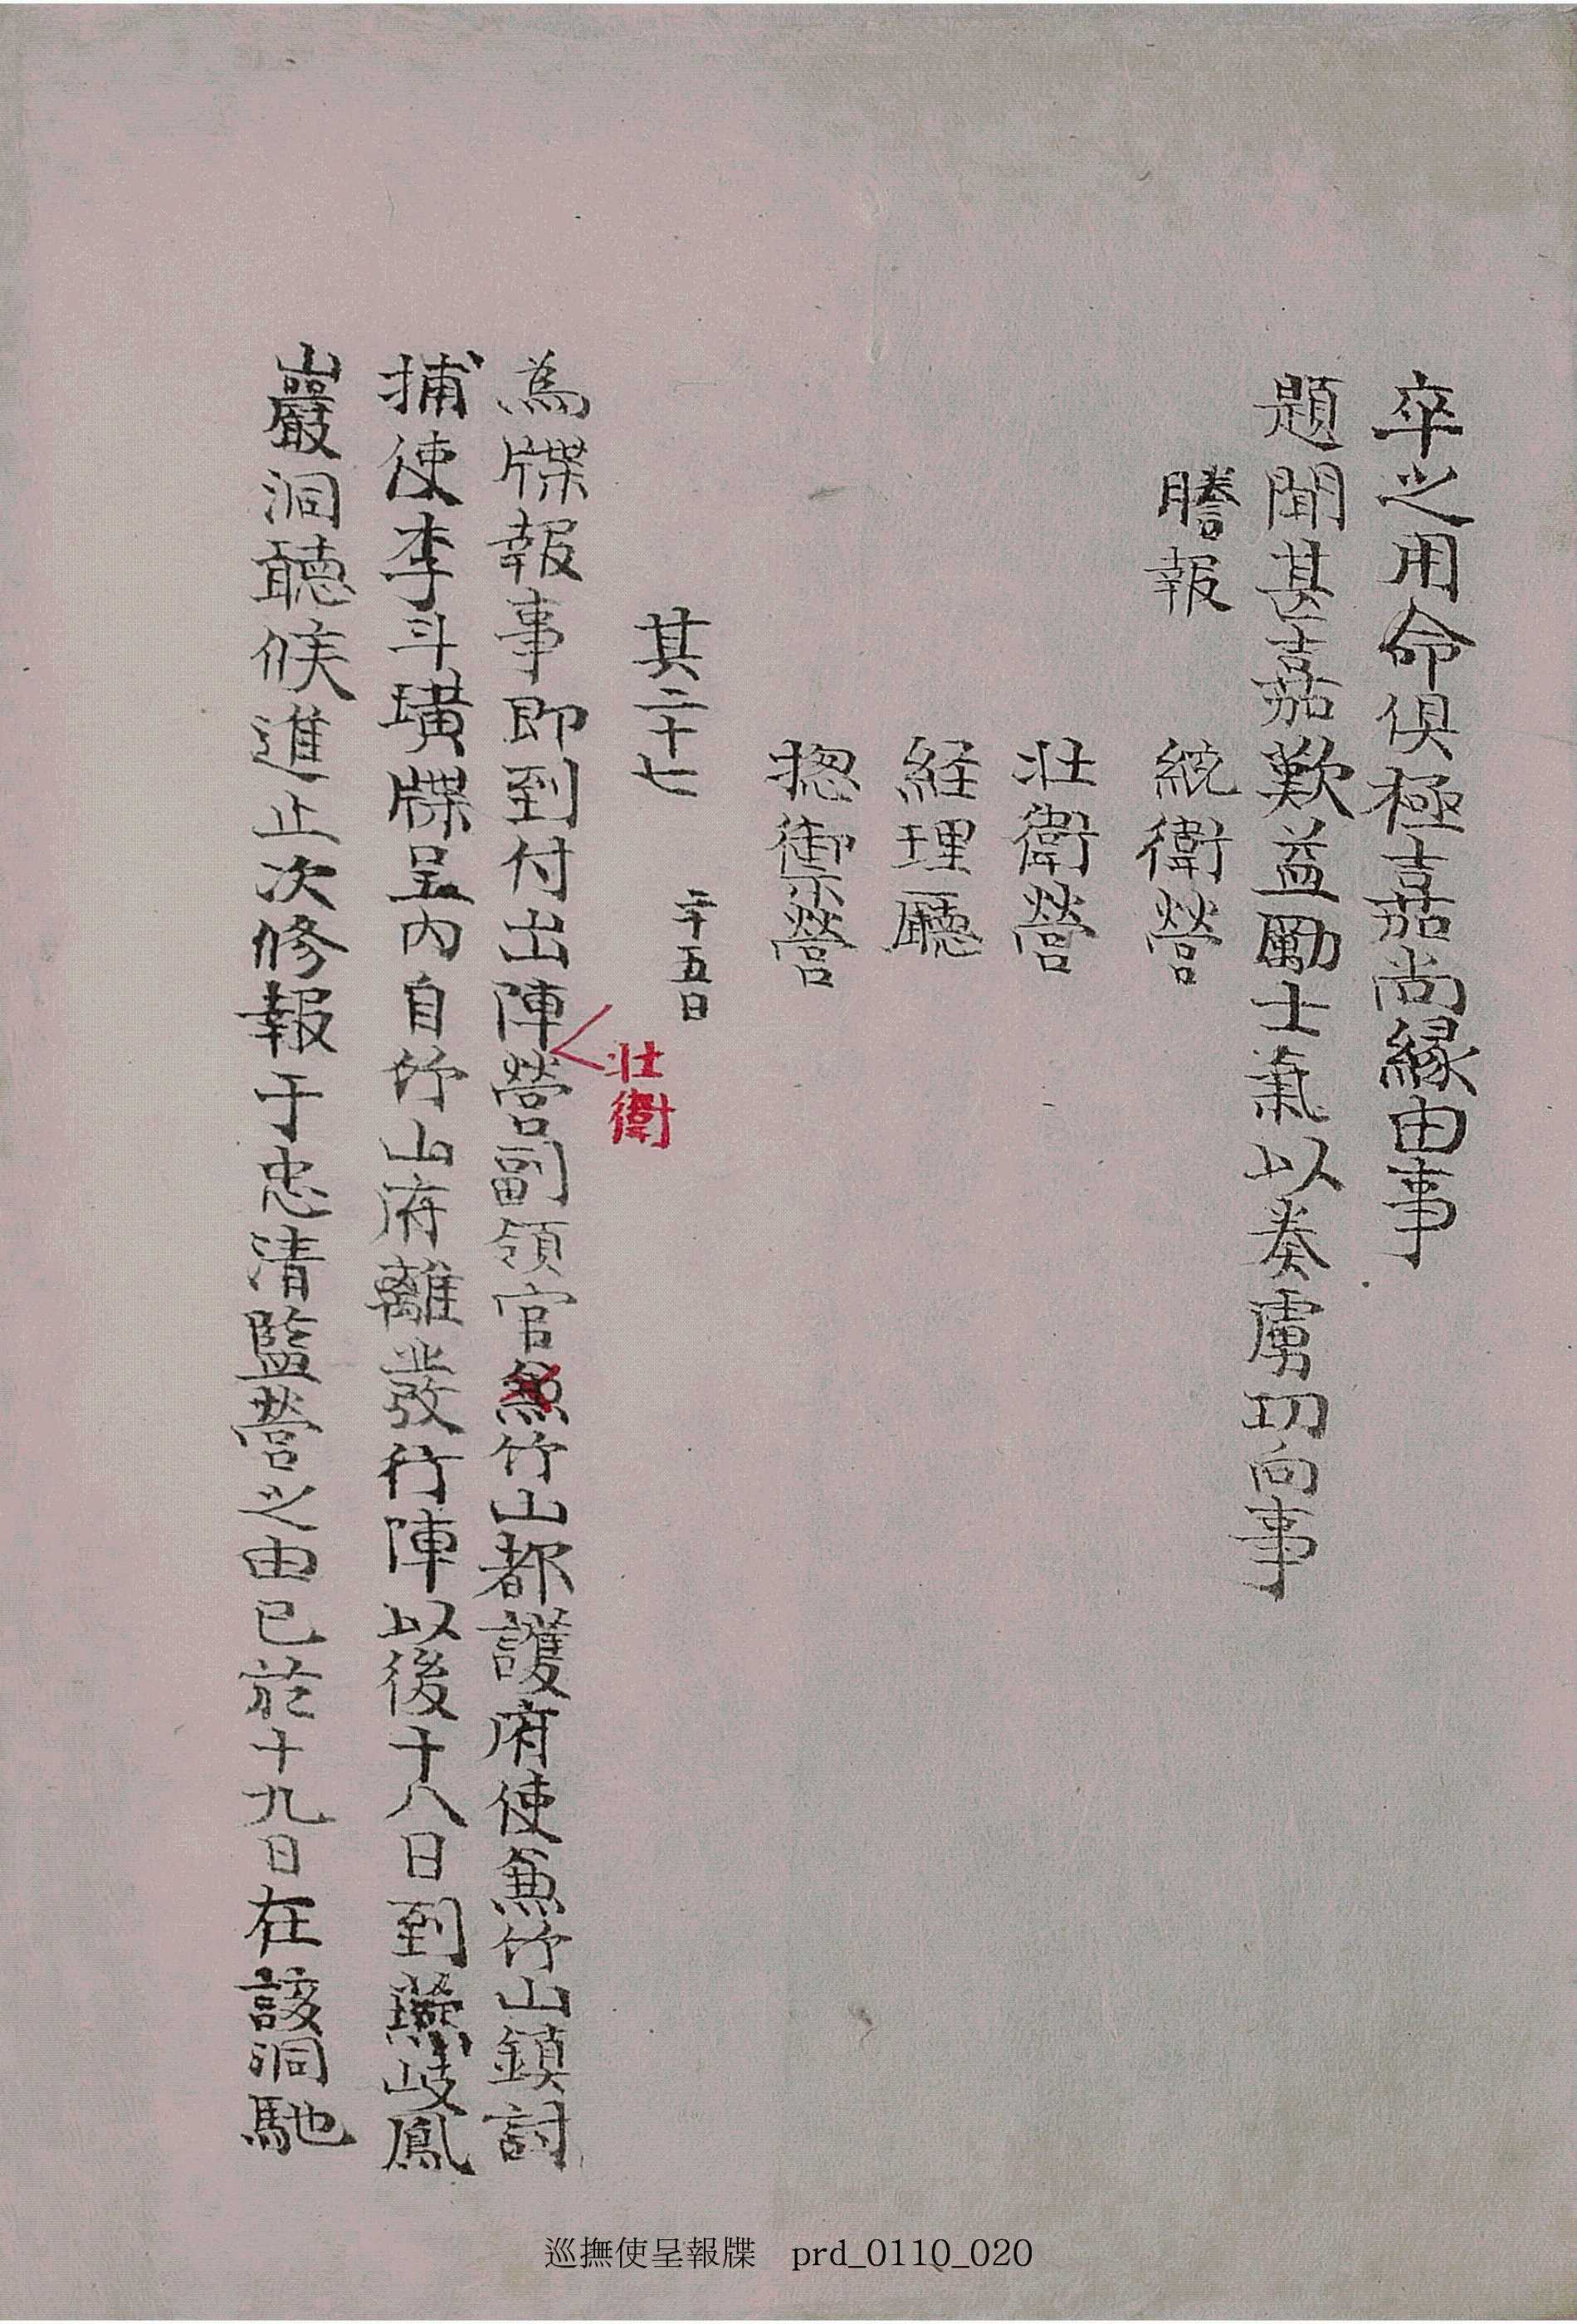 卒之用命俱極嘉尚緣由事
題聞甚嘉歎益勵士氣以奏膚功向事
謄報 統衛營
壯衛營
経理廳
揔禦營
其二十七 二十五日
為牒報事即到付出陣營副領官兼竹山都護府使兼竹山鎮討
壯衛
捕使李斗璜牒呈內自竹山府離發行陣以後十八日到燕岐鳳
巖洞聽候進止次修報于忠清監營之由已於十九日在該洞馳
巡撫使呈報牒 prd_0110_020